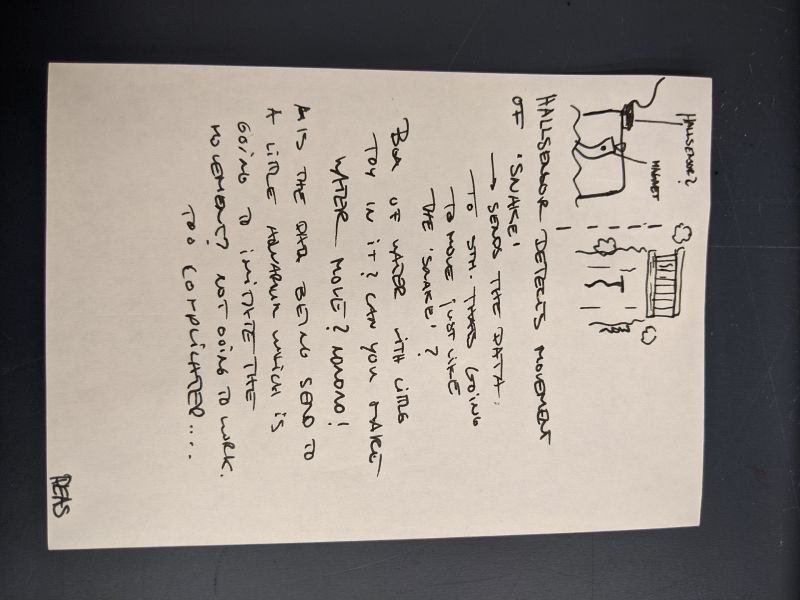 HALLSENSOR?
MAGNET
HALLSENSOR DETECTS MOVEMENT
OF 'SNAKE'
→ SENDS THE DATA
TO STH. THATS GOING
TO MOVE JUST LIKE
THE 'SNAKE'?
BOX OF WATER WITH LITTLE
TOY IN IT? CAN YOU MAKE
WATER MOVE? NONONO!
IS THE DATA BEING SEND TO
A LITTLE AQUARIUM WHICH IS
GOING TO IMITATE THE
MOVEMENT? NOT GOING TO WORK.
TOO COMPLICATED....